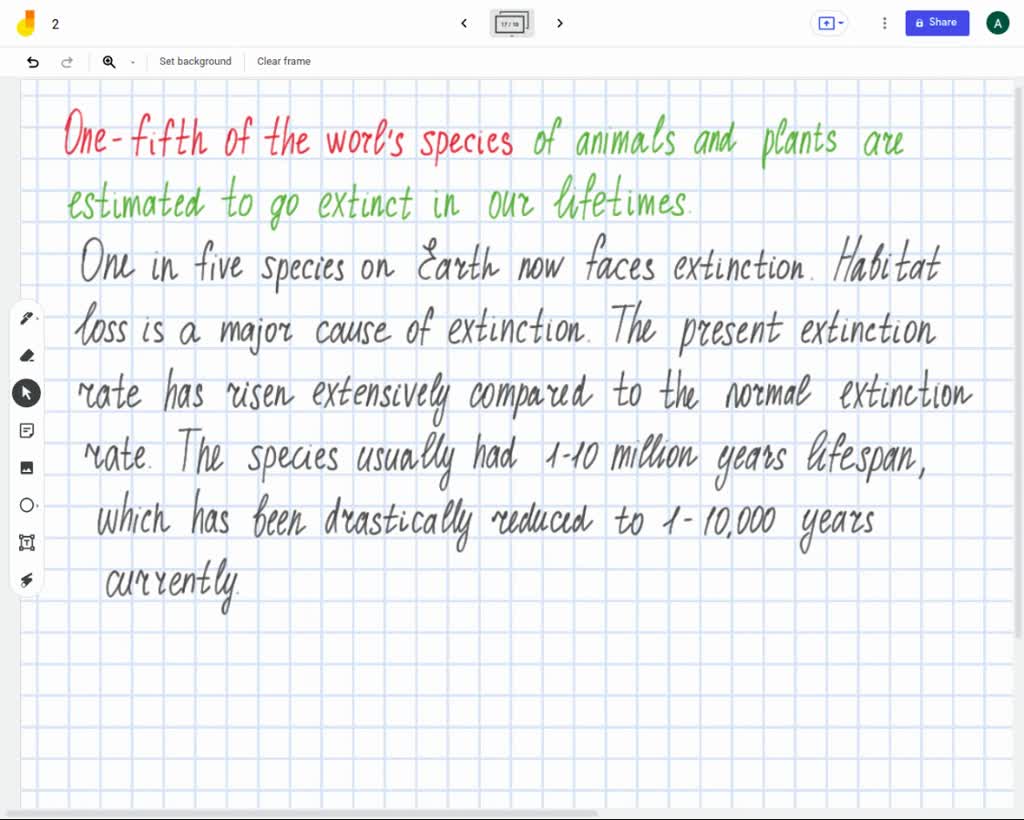 2
17 / 18
Share
A
Set background
Clear frame
One-fifth of the worl's species of animals and plants are
estimated to go extinct in our lifetimes.
One in five species on Earth now faces extinction. Habitat
loss is a major cause of extinction. The present extinction
rate has risen extensively compared to the normal extinction
rate. The species usually had 1-10 million years lifespan,
which has been drastically reduced to 1-10,000 years
currently.